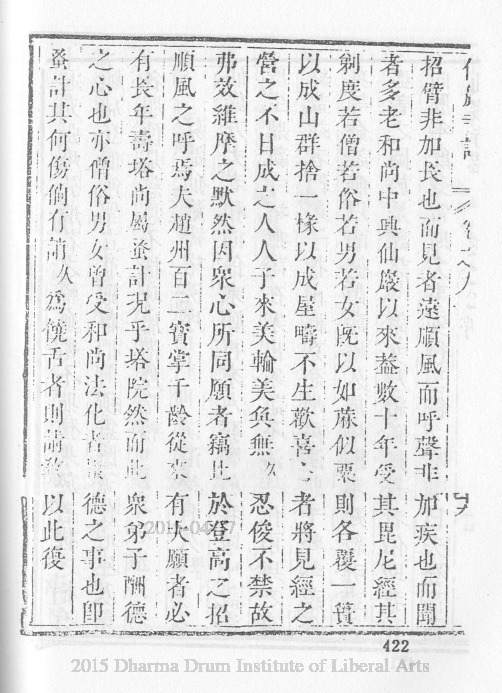 仙巖寺誌 卷之八
招臂非加長也而見者遠順風而呼聲非加疾也而聞
者多老和尚中興仙巖以來葢數十年受其毘尼經其
剃度若僧若俗若男若女旣以如蔴似粟則各覆一簣
以成山群捨一椽以成屋疇不生歡喜心者將見經之
營之不日成之人人子來美輪美奐無以忍俊不禁故
弗效維摩之默然因衆心所同願者竊比於登高之招
順風之呼焉夫趙州百二寶掌千齡從來有大願者必
有長年壽塔尚屬蚤計況乎塔院然而此衆弟子酬德
之心也亦僧俗男女曾受和尚法化者報德之事也卽
蚤計其何傷倘有誚 爲饒舌者則請 以此復
422
2015 Dharma Drum Institute of Liberal Arts